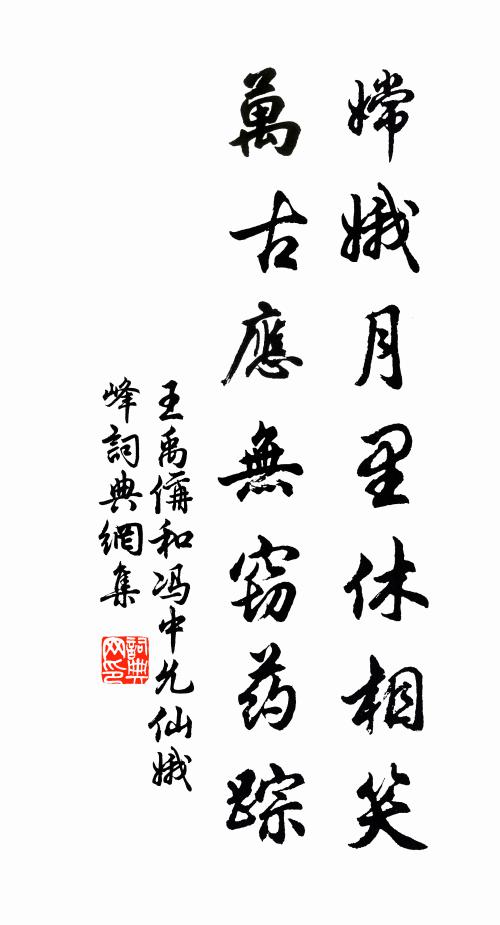 嫦娥月里休相笑
萬古應無窃药踪
王禹偁和冯中允仙娥
峰詞典網集
詞典网印